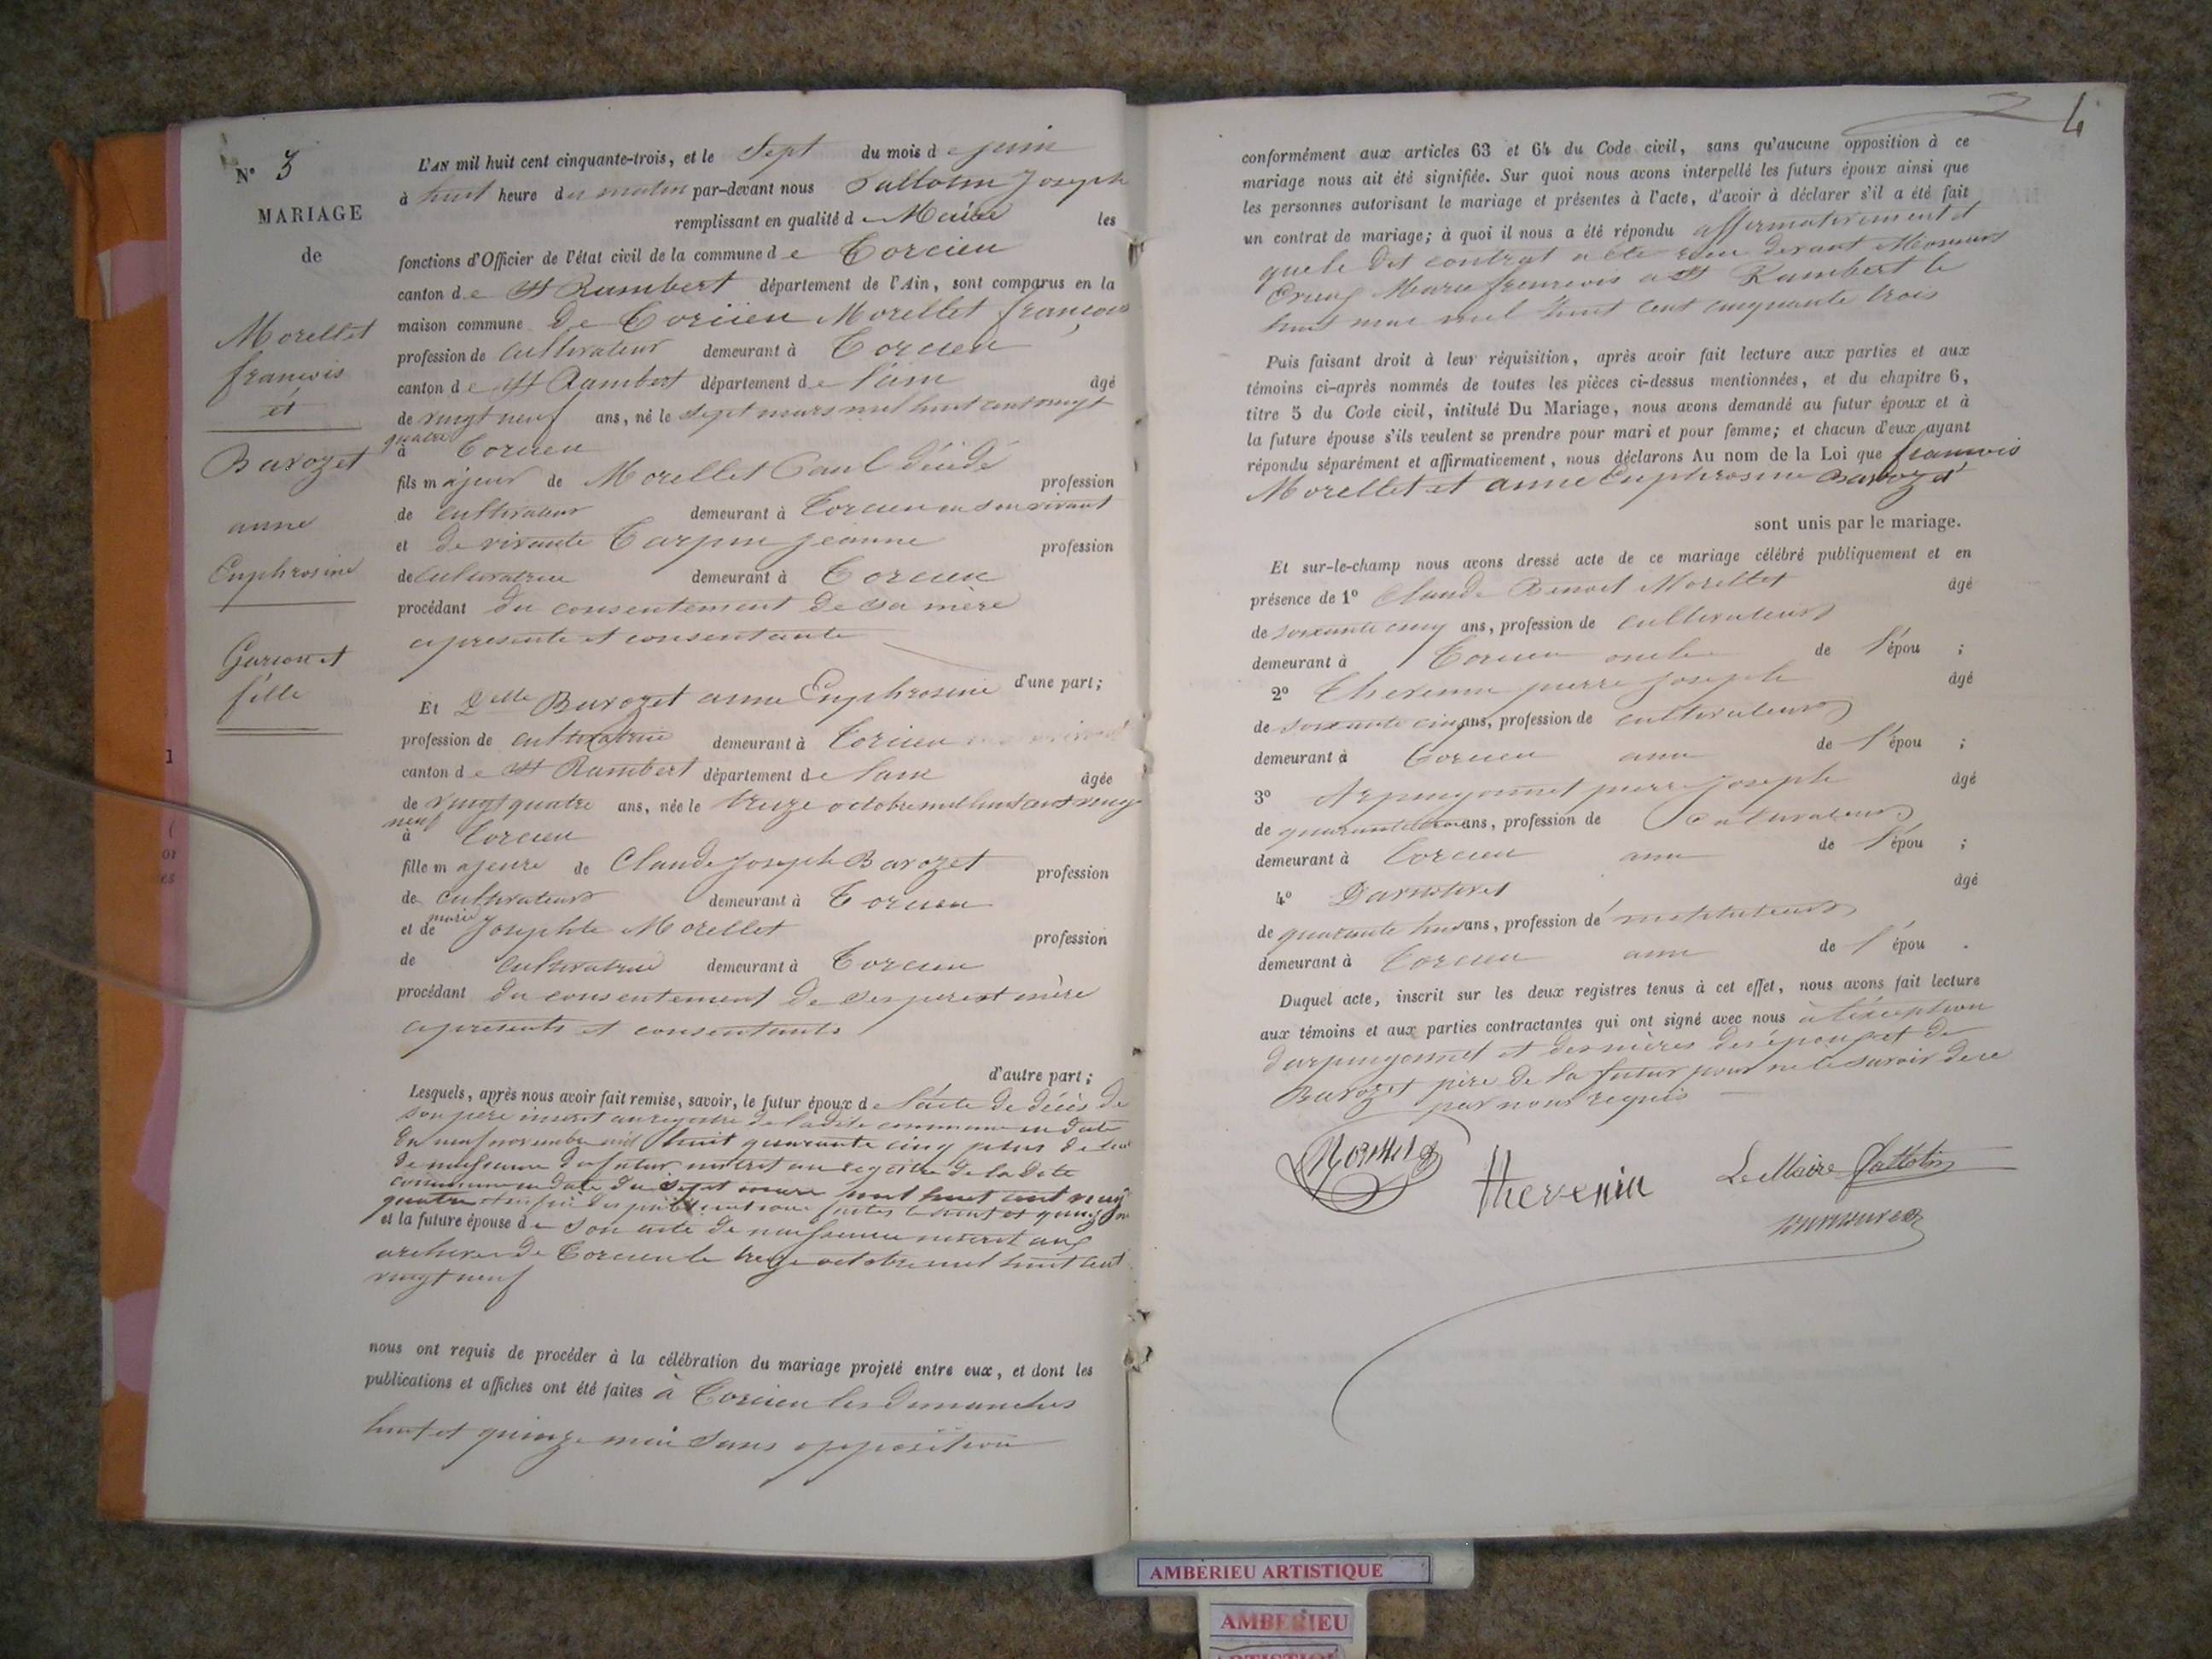 N° 3
MARIAGE
de
Morellet
francois
et
Barozet
anne
Euphrosine
Garcon et
fille
L'AN mil huit cent cinquante-trois, et le Sept du mois de juin
à huit heure du matin par-devant nous Joseph
remplissant en qualité de Maire les
fonctions d'Officier de l'état civil de la commune de Torcieu
canton de St Rambert département de l'Ain, sont comparus en la
maison commune de Torcieu Morellet francois
profession de cultivateur demeurant à Torcieu
canton de St Rambert département de l'ain âgé
de vingt neuf ans, né le sept mars mil huit cent vingt
quatre
à Torcieu
fils majeur de Morellet Paul décédé profession
de cultivateur demeurant à Torcieu en son vivant
et de vivante Carpin jeanne profession
de cultivatrice demeurant à Torcieu
procédant du consentement de sa mère
cy présente et consentante
d'une part;
Et Delle Barozet anne Euphrosine
profession de cultivatrice demeurant à Torcieu
canton de St Rambert département de l'ain âgée
de vingt quatre ans, née le treize octobre mil huit cent vingt
neuf
à Torcieu
fille majeure de Claude Joseph Barozet profession
de cultivateur demeurant à Torcieu
et de marie Josephte Morellet profession
de cultivatrice demeurant à Torcieu
procédant du consentement de ses pere et mère
cy presents et consentants
d'autre part;
Lesquels, après nous avoir fait remise, savoir, le futur époux de l'acte de décès de
son père inscrit au registre de ladite commune en date
du neuf novembre mil huit quarante cinq plus de
de naissance du futur inscrit au registre de la dite
commune en date du sept mars mil huit cent vingt
quatre et enfin des publications faites le huit et quinze
et la future épouse de son acte de naissance inscrit aux
archives de Torcieu le treize octobre mil huit cent
vingt neuf
nous ont requis de procéder à la célébration du mariage projeté entre eux, et dont les
publications et affiches ont été faites à Torcieu les dimanches
huit et quinze mai sans opposition
4
conformément aux articles 63 et 64 du Code civil, sans qu'aucune opposition à ce
mariage nous ait été signifiée. Sur quoi nous avons interpellé les futurs époux ainsi que
les personnes autorisant le mariage et présentes à l'acte, d'avoir à déclarer s'il a été fait
un contrat de mariage; à quoi il nous a été répondu affirmativement et
que le dit contrat a été devant
Marie francois a St Rambert le
huit mai mil huit cent cinquante trois
Puis faisant droit à leur réquisition, après avoir fait lecture aux parties et aux
témoins ci-après nommés de toutes les pièces ci-dessus mentionnées, et du chapitre 6,
titre 5 du Code civil, intitulé Du Mariage, nous avons demandé au futur époux et à
la future épouse s'ils veulent se prendre pour mari et pour femme; et chacun d'eux ayant
répondu séparément et affirmativement, nous déclarons Au nom de la Loi que francois
Morellet et anne Euphrosine Barozet
sont unis par le mariage.
Et sur-le-champ nous avons dressé acte de ce mariage célébré publiquement et en
présence de 1° Claude Benoit Morellet âgé
de soixante cinq ans, profession de cultivateur
demeurant à Torcieu oncle de l'épou ;
2° Thevenin pierre joseph âgé
de soixante cinq ans, profession de cultivateur
demeurant à Torcieu ami de l'épou ;
3° pierre Joseph âgé
de quarante ans, profession de Cultivateur
demeurant à Torcieu ami de l'épou ;
4° âgé
de quarante ans, profession de instituteur
demeurant à Torcieu ami de l'épou .
Duquel acte, inscrit sur les deux registres tenus à cet effet, nous avons fait lecture
aux témoins et aux parties contractantes qui ont signé avec nous à l'exception
et des mères des époux et de
Barozet père de la futur pour ne le savoir de ce
par nous requis
Morellet
thevenin
Le Maire
AMBERIEU ARTISTIQUE
AMBERIEU
ARTISTIQUE